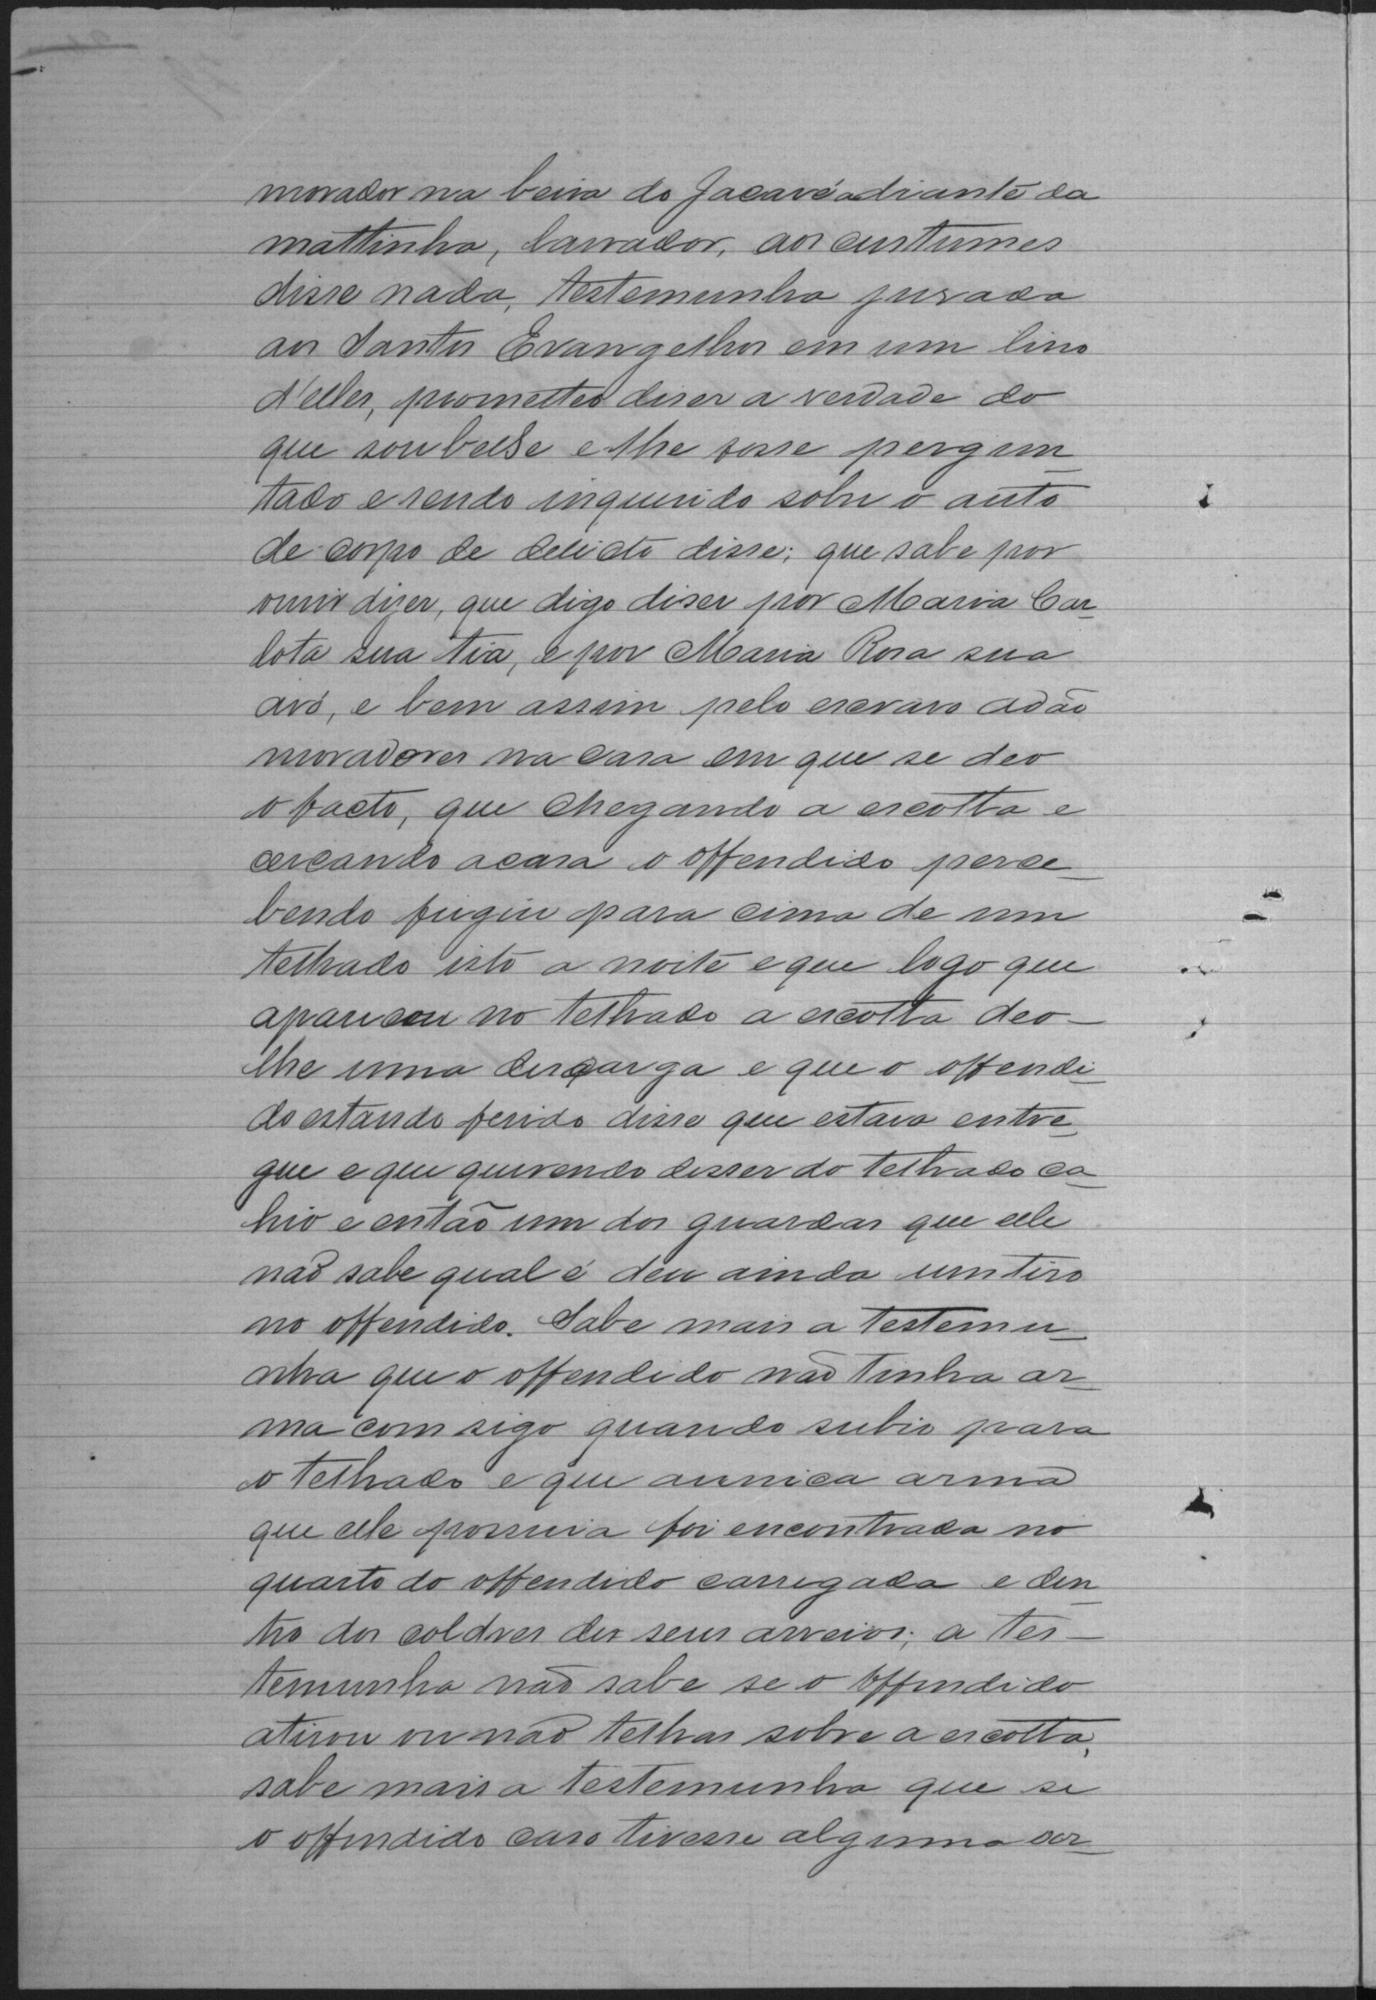 morador na beira do Jacaré adiante da
mattinha, lavrador, aos custumes
disse nada, testemunha jurada
aos Santos Evangelhos em um livro
d'elles, prometteo diser a verdade do
que soubesse e lhe fosse pergun
tado e sendo inquerido sobre o auto
de corpo de delicto disse; que sabe por
ouvir dizer, que digo diser por Maria Car-
lota sua tia, e por Maria Rosa sua
avó, e bem assim pelo escravo Adão
moradores na casa em que se deo
o facto, que chegando a escolta e
cercando a casa o offendido perce-
bendo fugiu para cima de um
telhado isto a noite e que logo que
apareceu no telhado a escolta deo-
lhe uma descarga e que o offendi-
do estando ferido disse que estava entre-
gue e que querendo desser do telhado ca-
hio e então um dos guardas que elle
não sabe qual é deu ainda um tiro
no offendido. Sabe mais a testemu-
nha que o offendido não tinha ar-
ma com sigo quando subio para
o telhado e que a unica arma
que elle possuia foi encontrada no
quarto do offendido carregada e den
tro dos coldres dos seus arreios; a tes-
temunha não sabe se o offendido
atirou ou não telhas sobre a escolta,
sabe mais a testemunha que se
o offendido caso tivesse alguma ar-